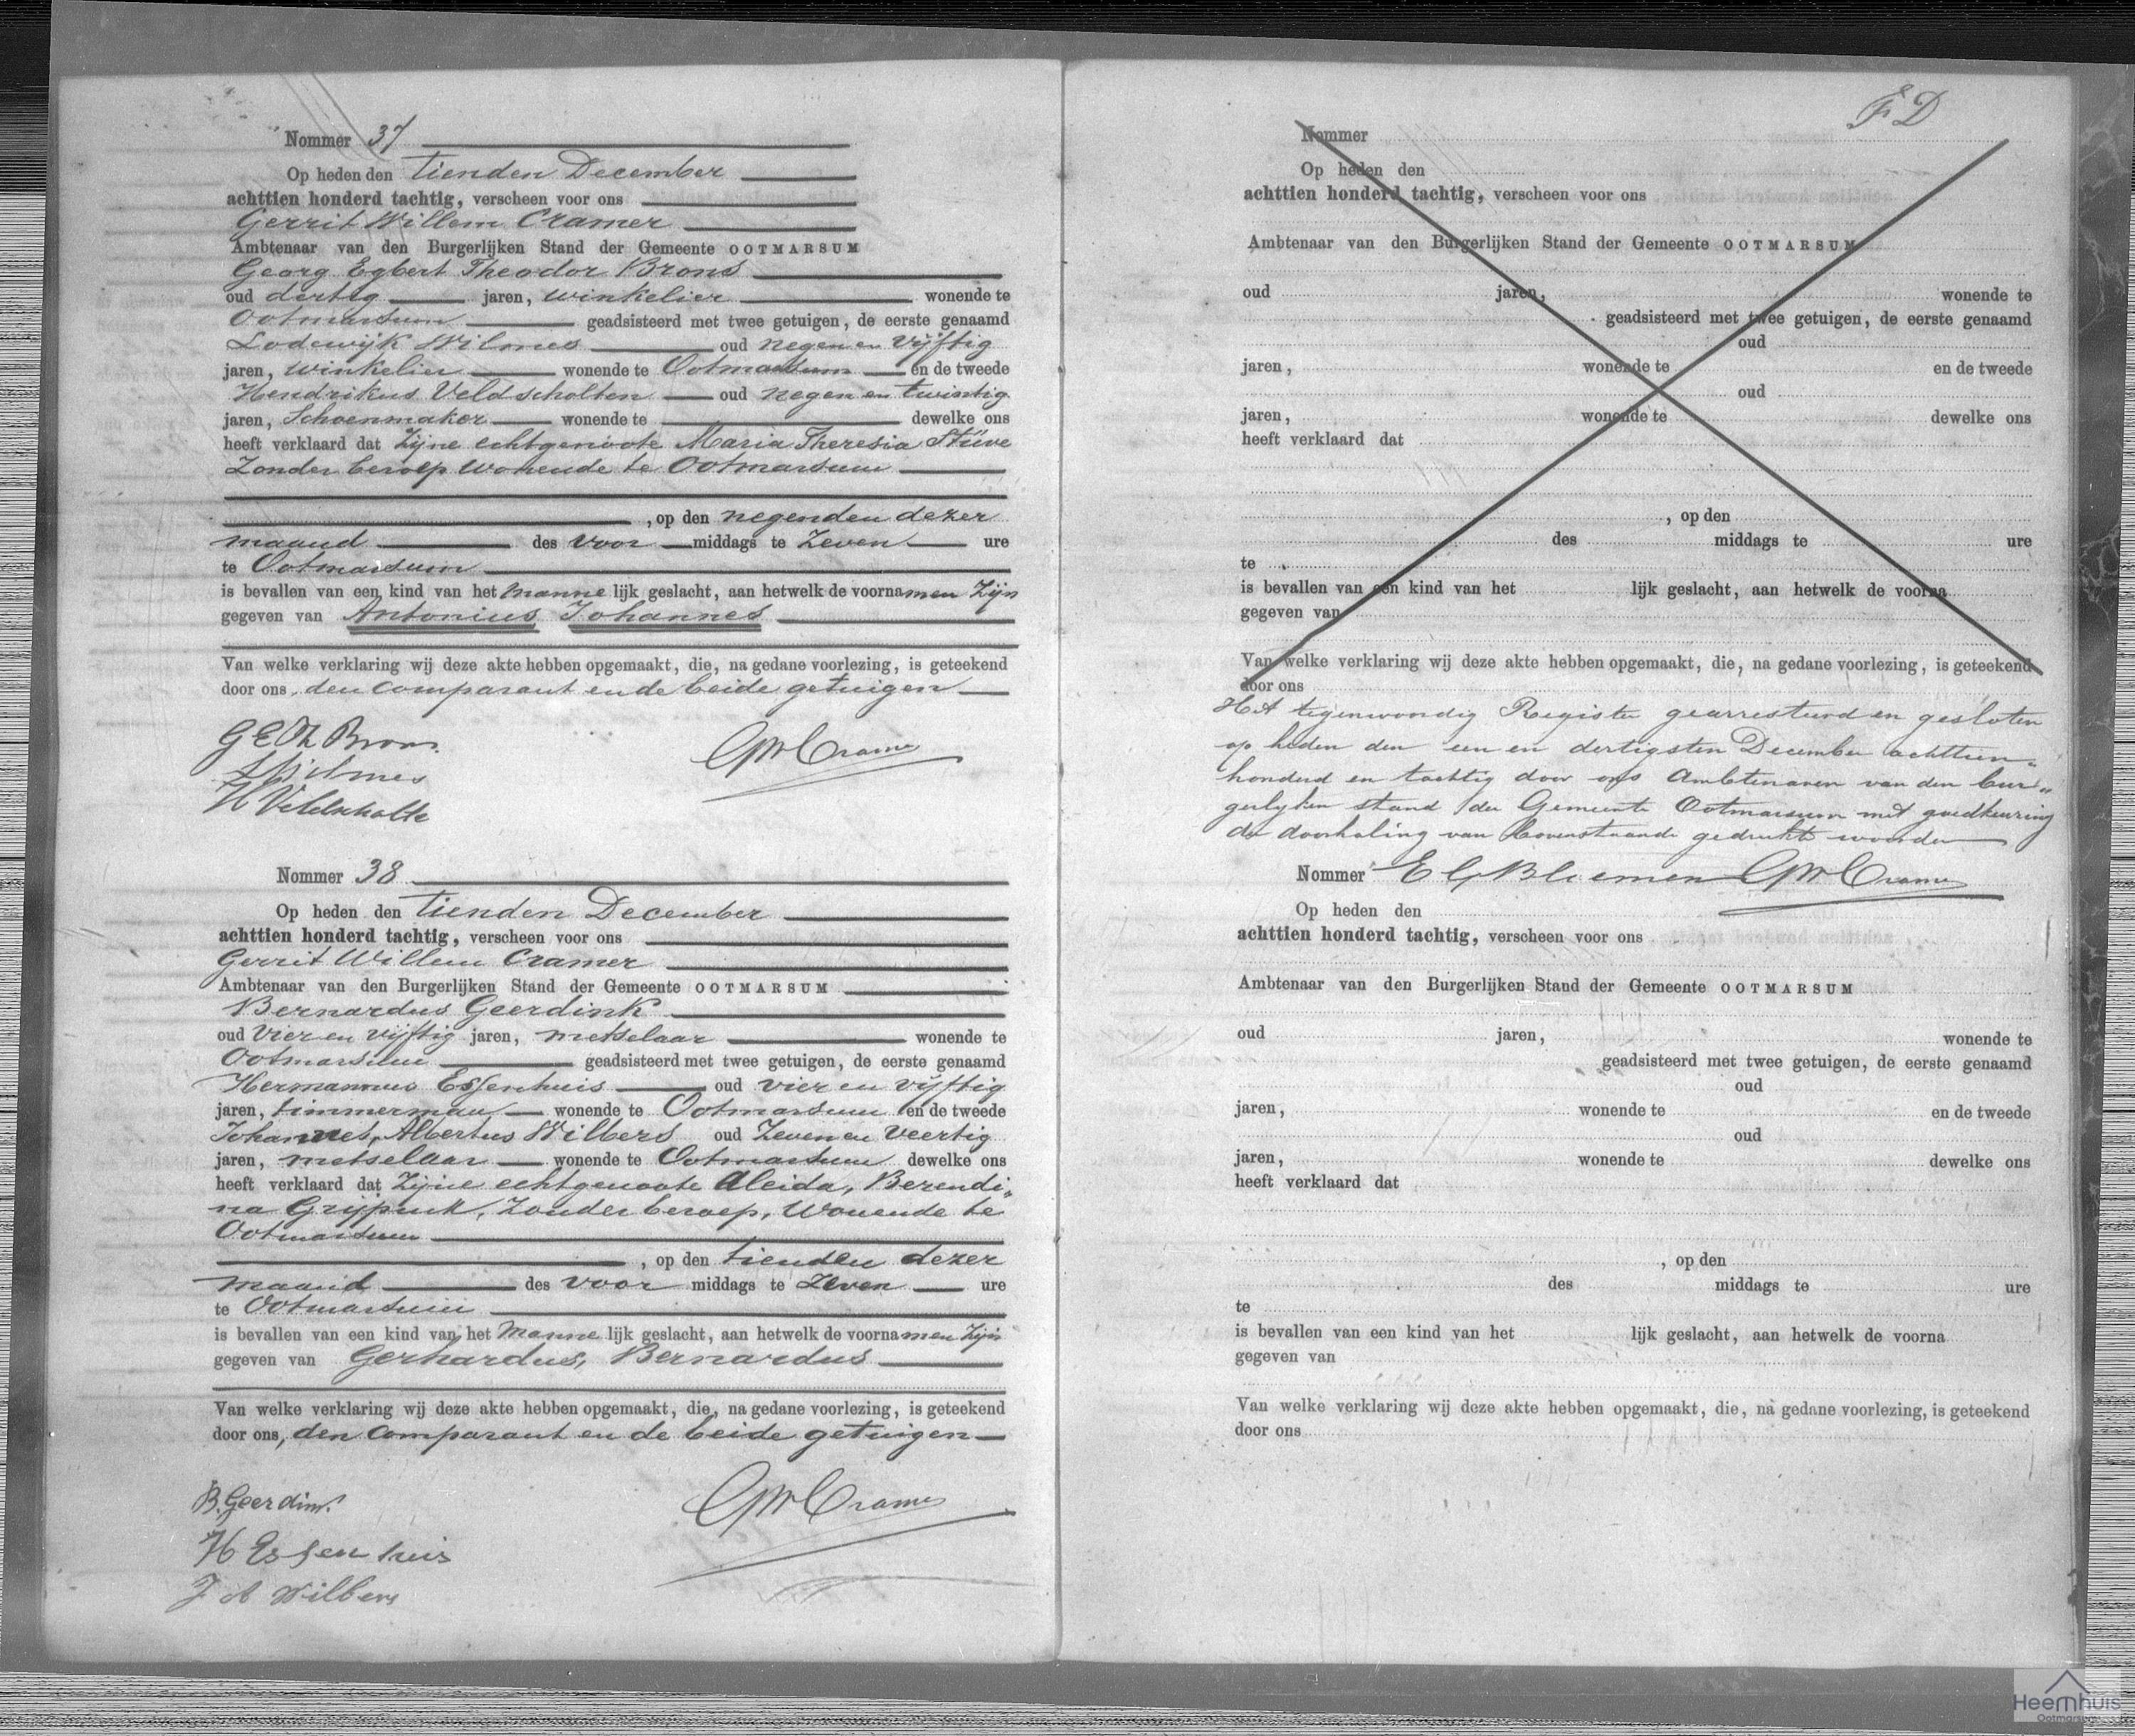 Nommer 37
Op heden den tienden December
achttien honderd tachtig, verscheen voor ons
Gerrit Willem Cramer
Ambtenaar van den Burgerlijken Stand der Gemeente OOTMARSUM
Georg Egbert Theodor Brons
oud dertig jaren, winkelier wonende te
Ootmarsum geadsisteerd met twee getuigen, de eerste genaamd
Lodewijk Wilmes oud negen en vijftig
jaren, winkelier wonende te Ootmarsum en de tweede
Hendrikus Veldscholten oud negen en twintig
jaren, Schoenmaker wonende te dewelke ons
heeft verklaard dat Zijne echtgenoote Maria Theresia Stüve
Zonder beroep wonende te Ootmarsum
, op den negenden dezer
maand des voor middags te Zeven ure
te Ootmarsum
is bevallen van een kind van het manne lijk geslacht, aan hetwelk de voornamen Zijn
gegeven van Antonius Johannes
Van welke verklaring wij deze akte hebben opgemaakt, die, na gedane voorlezing, is geteekend
door ons, den Comparant en de beide getuigen
G E Th Brons
L Wilmes
H Veldscholte
GW Cramer
Nommer 38
Op heden den tienden December
achttien honderd tachtig, verscheen voor ons
Gerrit Willem Cramer
Ambtenaar van den Burgerlijken Stand der Gemeente OOTMARSUM
Bernardus Geerdink
oud Vier en vijftig jaren, metselaar wonende te
Ootmarsum geadsisteerd met twee getuigen, de eerste genaamd
Hermannus Essenhuis oud vier en vijftig
jaren, timmerman wonende te Ootmarsum en de tweede
Johannes, Albertus Wilbers oud Zeven en Veertig
jaren, metselaar wonende te Ootmarsum dewelke ons
heeft verklaard dat Zijne echtgenoote Aleida, Berendi„
na Grijpink, Zonder beroep, Wonende te
Ootmarsum
, op den tienden dezer
maand des voor middags te Zeven ure
te Ootmarsum
is bevallen van een kind van het Manne lijk geslacht, aan hetwelk de voornamen Zijn
gegeven van Gerhardus, Bernardus
Van welke verklaring wij deze akte hebben opgemaakt, die, na gedane voorlezing, is geteekend
door ons, den Comparant en de beide getuigen
B. Geerdink
H Essenhuis
J A Wilbers
GW Cramer
F D
Nommer
Op heden den
achttien honderd tachtig, verscheen voor ons
Ambtenaar van den Burgerlijken Stand der Gemeente OOTMARSUM
oud jaren, wonende te
geadsisteerd met twee getuigen, de eerste genaamd
oud
jaren, wonende te en de tweede
oud
jaren, wonende te dewelke ons
heeft verklaard dat
, op den
des middags te ure
te
is bevallen van een kind van het lijk geslacht, aan hetwelk de voorna
gegeven van
Van welke verklaring wij deze akte hebben opgemaakt, die, na gedane voorlezing, is geteekend
door ons
Het tegenwoordig Register gearresteerd en gesloten
op heden den een en dertigsten December achttien„
honderd en tachtig door ons Ambtenaren van den bur„
gerlyken stand der Gemeente Ootmarsum met goedkeuring
der doorhaling van bovenstaande gedrukte woorden
Nommer E G Bloemen GW Cramer
Op heden den
achttien honderd tachtig, verscheen voor ons
Ambtenaar van den Burgerlijken Stand der Gemeente OOTMARSUM
oud jaren, wonende te
geadsisteerd met twee getuigen, de eerste genaamd
oud
jaren, wonende te en de tweede
oud
jaren, wonende te dewelke ons
heeft verklaard dat
, op den
des middags te ure
te
is bevallen van een kind van het lijk geslacht, aan hetwelk de voorna
gegeven van
Van welke verklaring wij deze akte hebben opgemaakt, die, na gedane voorlezing, is geteekend
door ons
Heemhuis
Ootmarsum